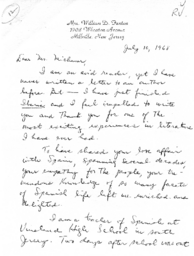 Mrs. William D. Fenton
1928 Wheaton Avenue
Millville New Jersey
July 10, 1968
Dear Mr. Michener,
I am an avid reader, yet I have
never written a letter to an author
before but — I have just finished
Iberia and I feel impelled to write
you and thank you for one of the
most exciting experiences in literature
I have ever had.
To have shared your love affair
with Spain, spanning several decades,
your sympathy for the people, your tre-
mendous knowledge of so many facets
of Spanish life left me enriched and
delighted.
I am a teacher of Spanish at
Vineland High School in south
Jersey. Two days after school was out